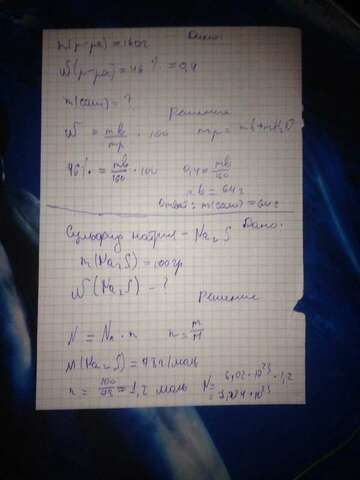 m(р-ра) = 160г
Дано:
W(р-ра) = 40% = 0,4
m(соли) = ?
Решение
W = mв/mр · 100 mр = mв + mH₂O
40% = mв/160 · 100 0,4 = mв/160
mв = 64 г
Ответ: m(соли) = 64 г
Сульфид натрия - Na₂S Дано:
m(Na₂S) = 100гр
(Na₂S) - ?
Решение
N = Nₐ · n n = m/M
M(Na₂S) = 78 г/моль
n = 100/78 = 1,2 моль N = 6,02 · 10²³ · 1,2
= 7,224 · 10²³